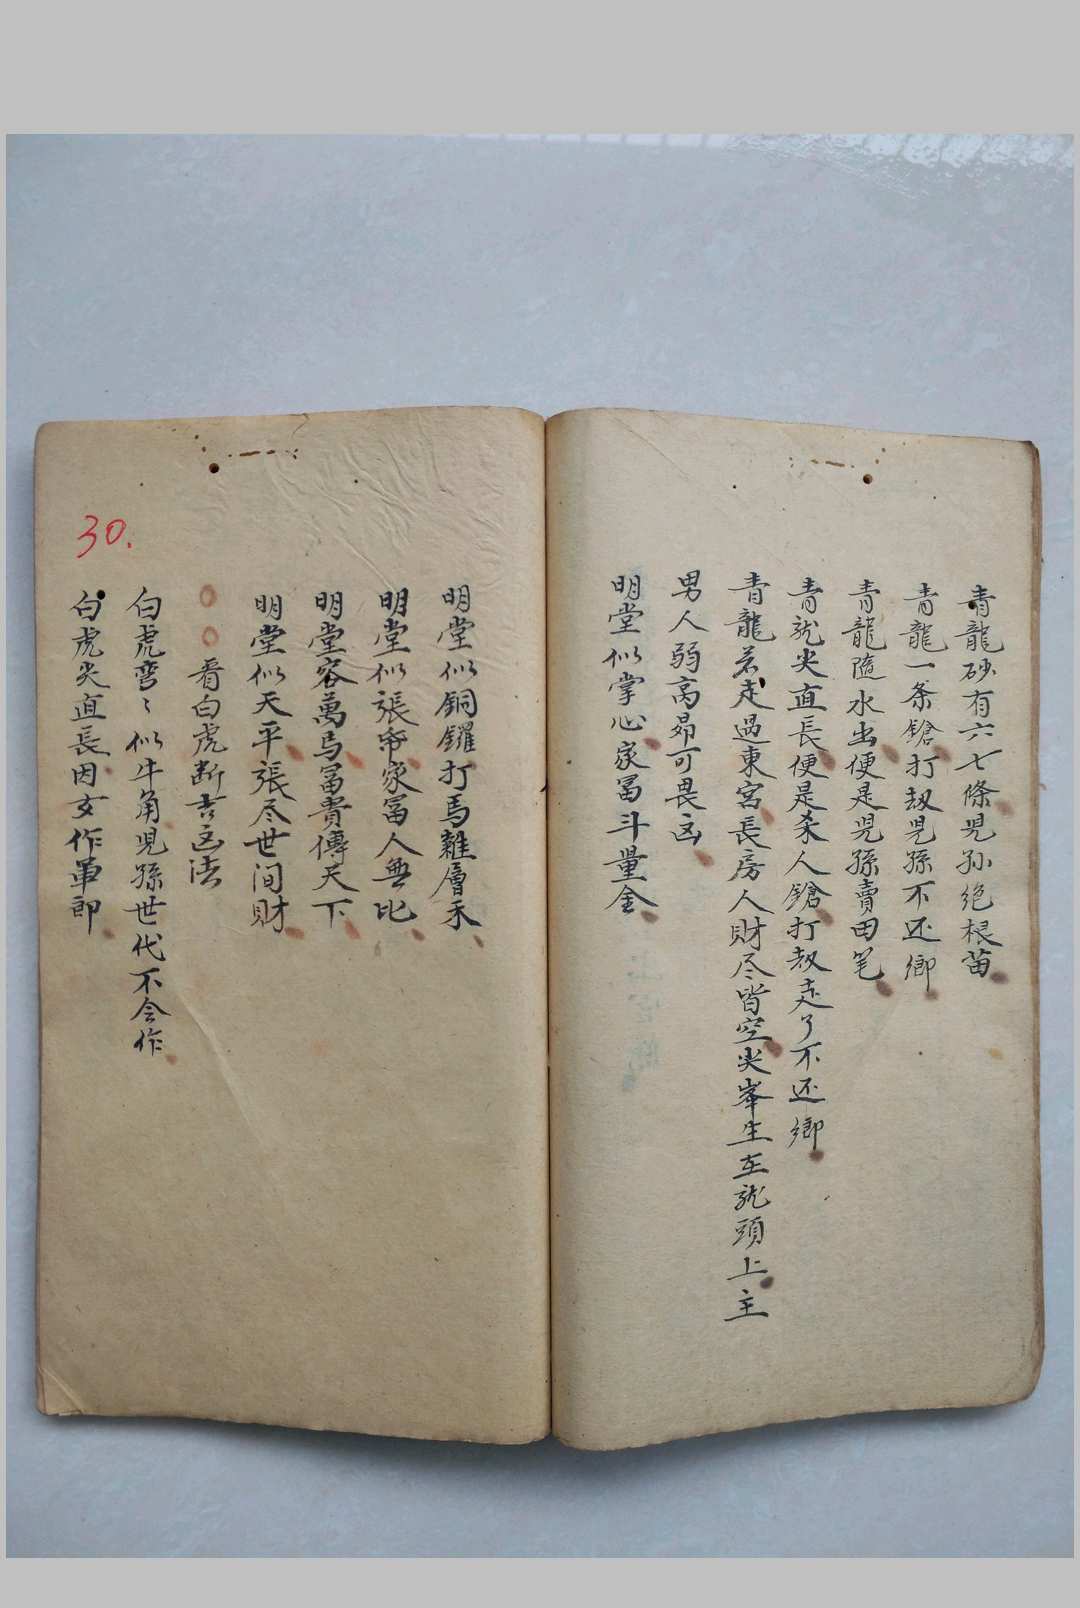 青龍砂有六七條児孙绝根苗
青龍一条鎗打刼児孫不还鄉
青龍隨水出便是児孫賣田笔
青龙尖直長便是杀人鎗打刼走了不还鄉
青龍若走過東宮長房人財尽皆空尖峯生在龙頭上主
男人弱高昴可畏凶
明堂似掌心家冨斗量金
明堂似銅鑼打馬難層禾
明堂似張帘家冨人無比
明堂容萬马冨貴傳天下
明堂似天平張尽世间財
看白虎断吉凶法
白虎弯〻似牛角児孫世代不会作
白虎尖直長因女作軍郎
30.